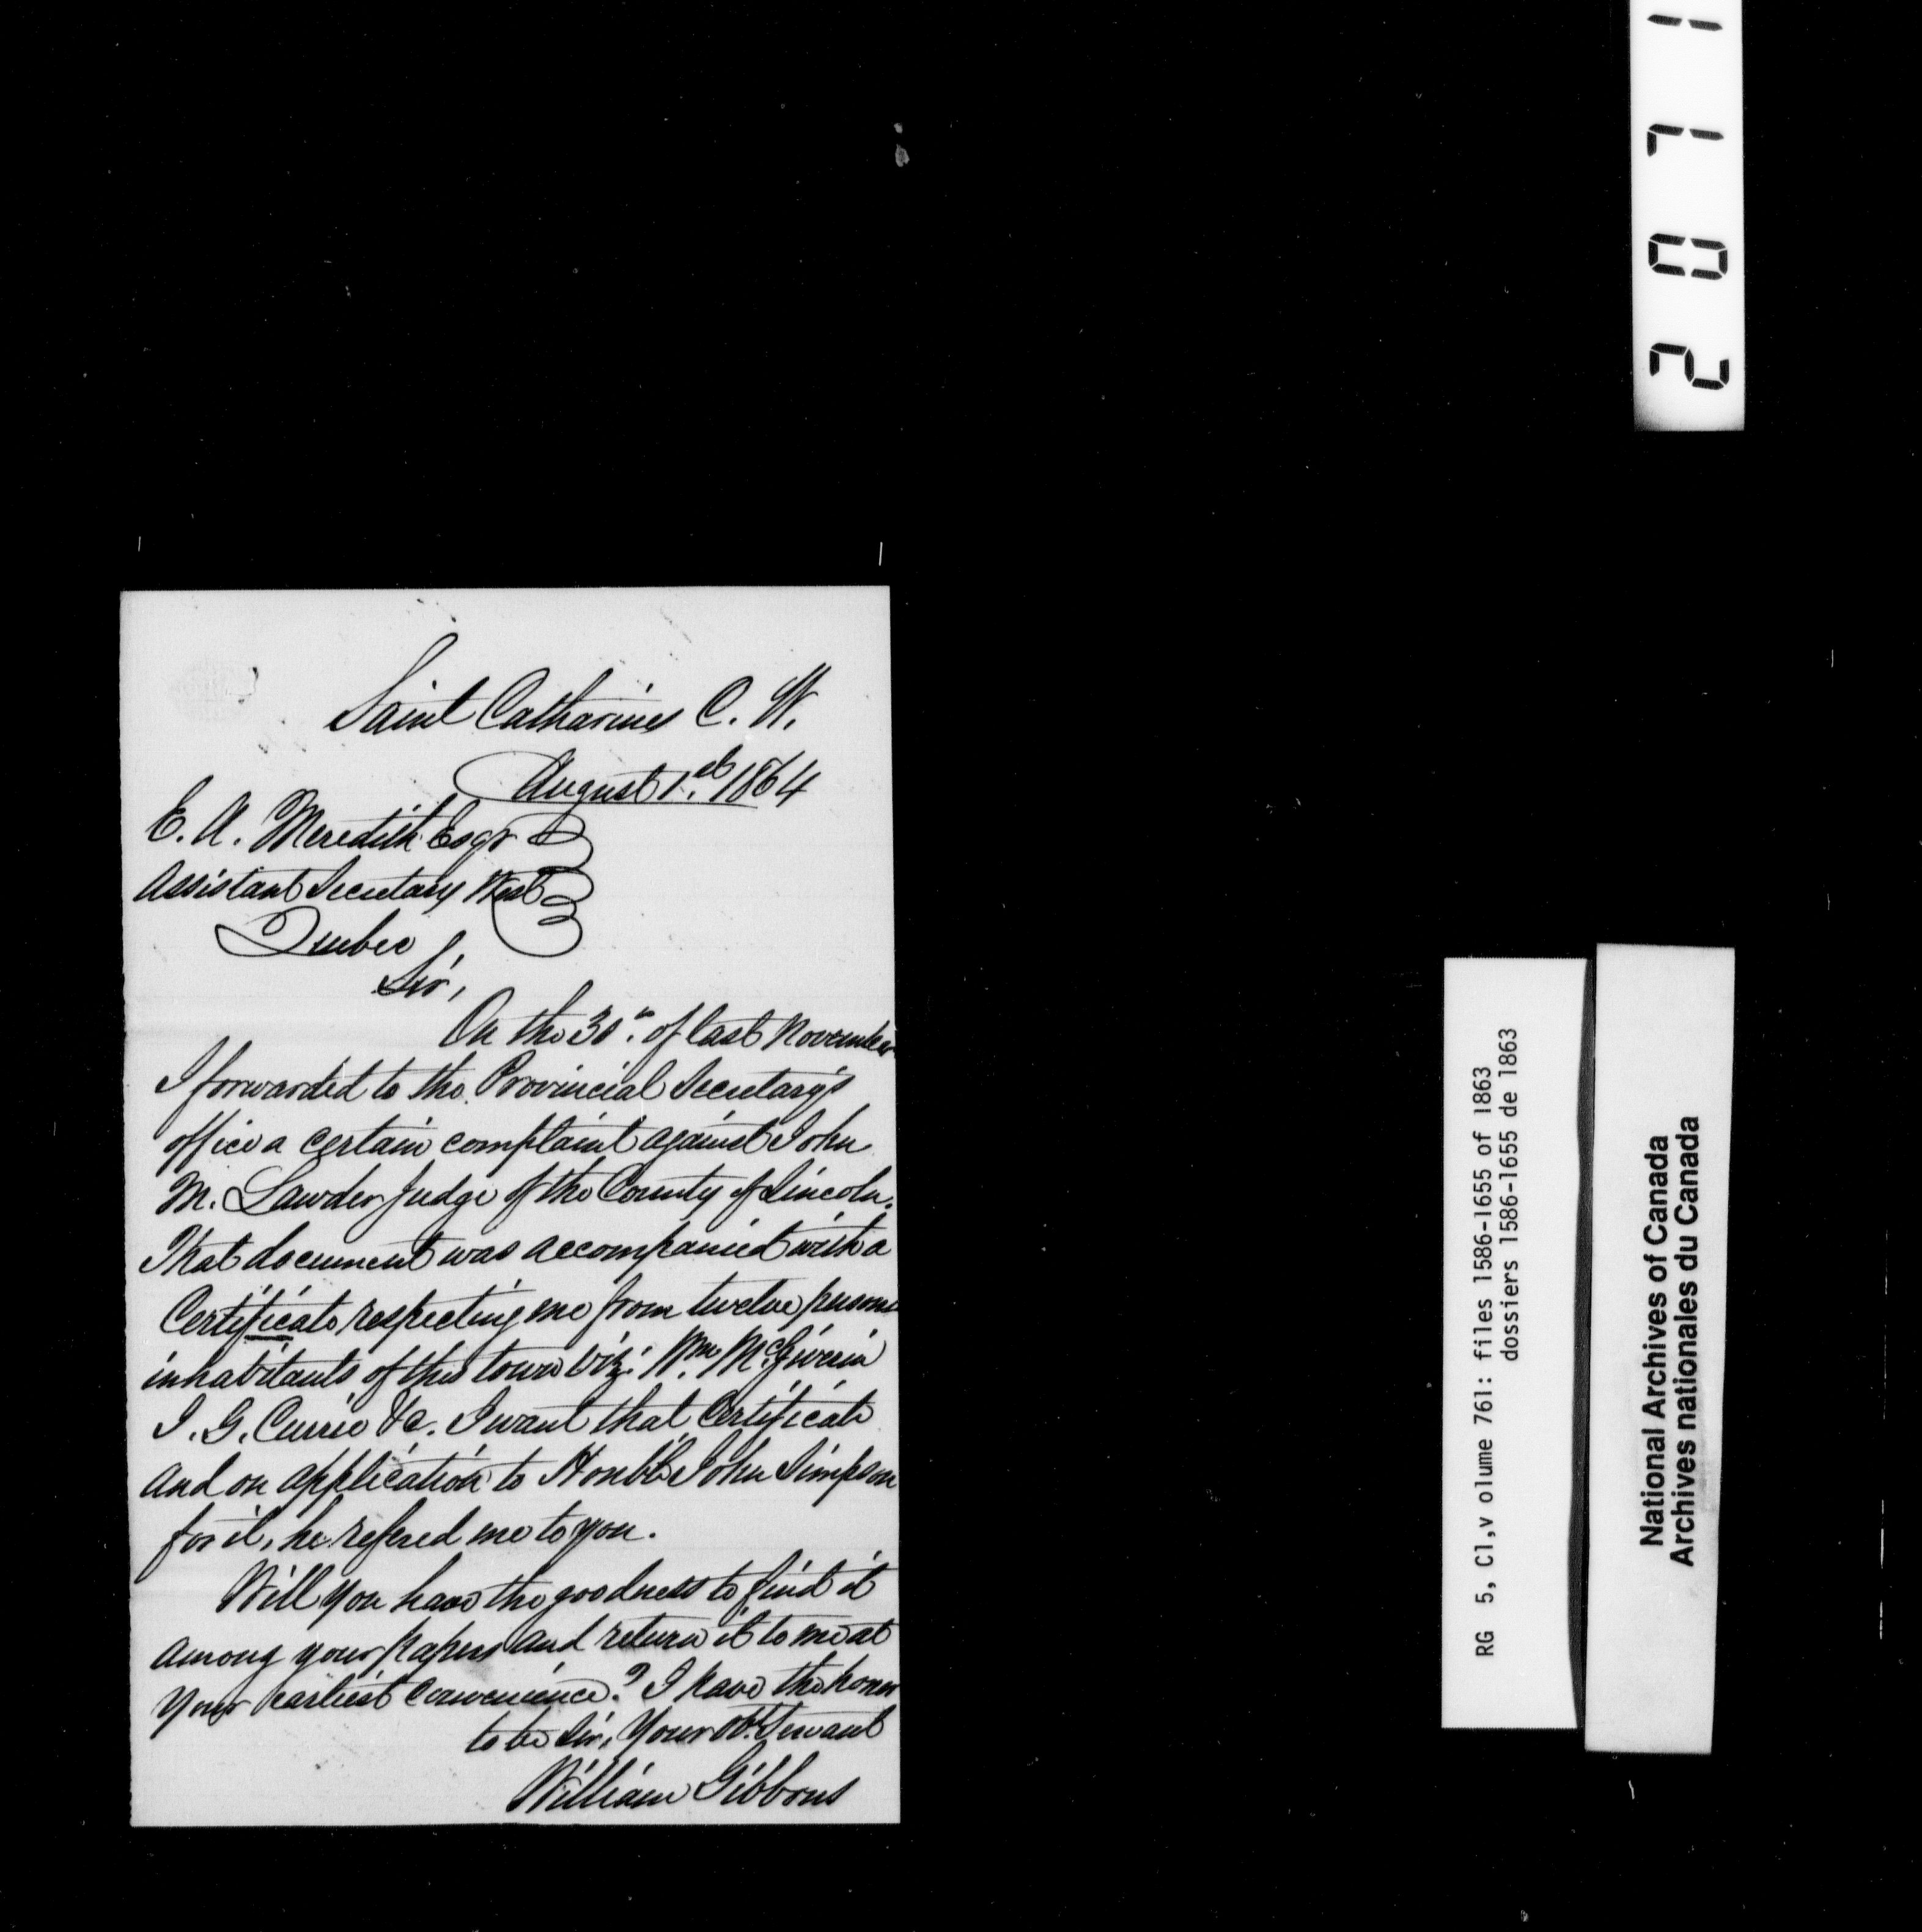 Saint Catharines C. W.
August 1st. 1864
E. A. Meredith Esqr
Assistant Secretary West
Quebec
Sir,
On the 30th. of last November
I forwarded to the Provincial Secretary's
office a certain complaint against John
M. Lawder Judge of the County of Lincoln.
That document was accompanied with a
Certificate respecting me from twelve persons
inhabitants of this town viz: Wm. McGiverin
J. G. Currie &c. I want that Certificate
and on application to Honble John Simpson
for it, he refered me to you.
Will you have the goodness to find it
among your papers and return it to me at
your earliest convenience? I have the honor
to be Sir, Your obt. Servant
William Gibbons
2071
RG 5, C1,v olume 761: files 1586-1655 of 1863
dossiers 1586-1655 de 1863
National Archives of Canada
Archives nationales du Canada